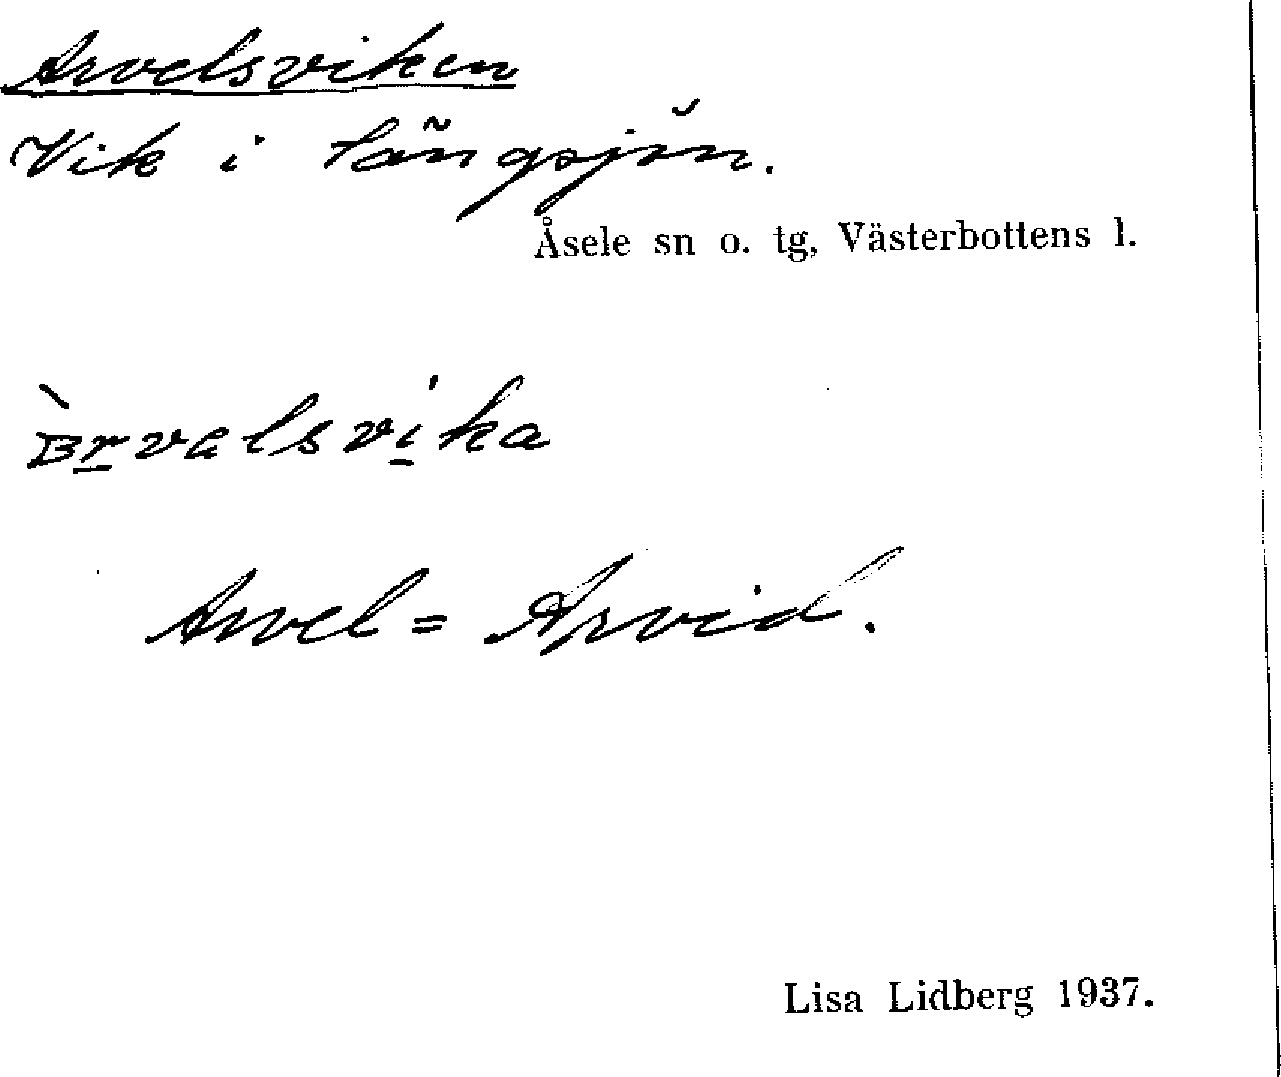 Arvelsviken
Vik i Långsjön.
Åsele sn o. tg, Västerbottens l.
Arvel = Arvid.
Lisa Lidberg 1937.